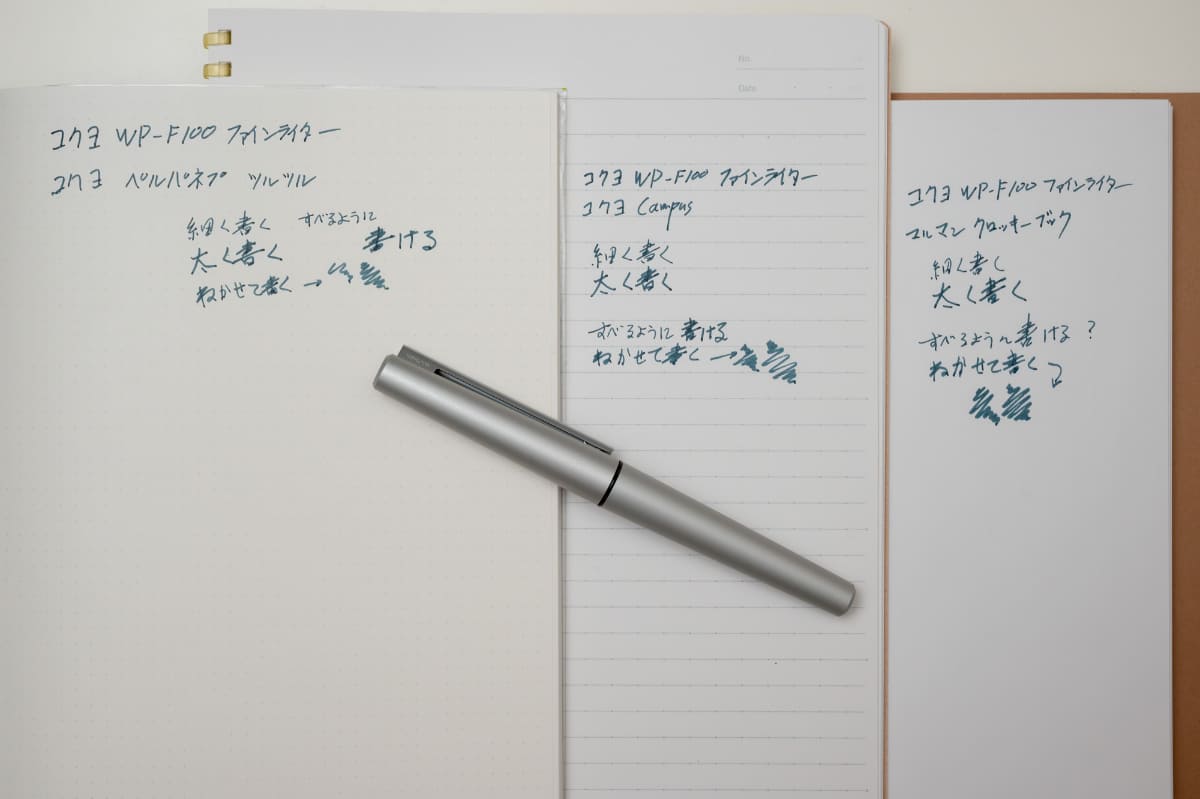 コクヨ WP-F100 ファインライター
コクヨ ペルパネプ ツルツル
細く書く すべるように
太く書く 書ける
ねかせて書く →
No.
Date
コクヨ WP-F100 ファインライター
コクヨ Campus
細く書く
太く書く
すべるように書ける
ねかせて書く →
コクヨ WP-F100 ファインライター
マルマン クロッキーブック
細く書く
太く書く
すべるように書ける?
ねかせて書く